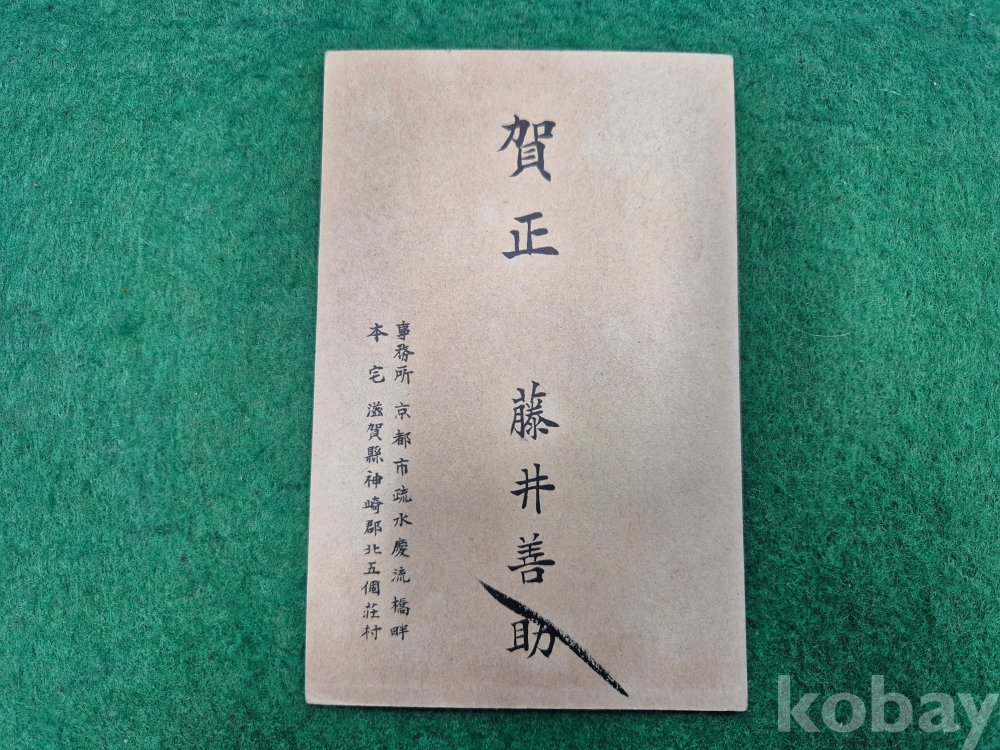 賀正
藤井善助
事務所 京都市疏水慶流橋畔
本宅 滋賀縣神崎郡北五個荘村
kobay